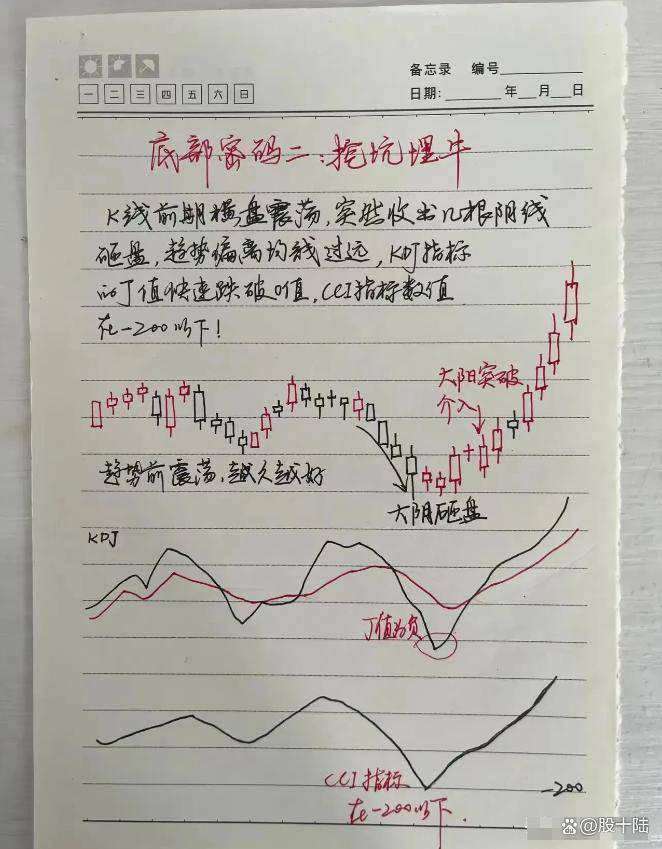 备忘录 编号
一 二 三 四 五 六 日
日期: 年 月 日
底部密码二:挖坑埋牛
K线前期横盘震荡,突然收出几根阴线
砸盘,趋势偏离均线过远,KDJ指标
的J值快速跌破0值,CCI指标数值
在-200以下!
大阳突破
介入
趋势前震荡,越久越好
大阴砸盘
KDJ
J值为负
CCI指标
在-200以下.
-200
@股十陆